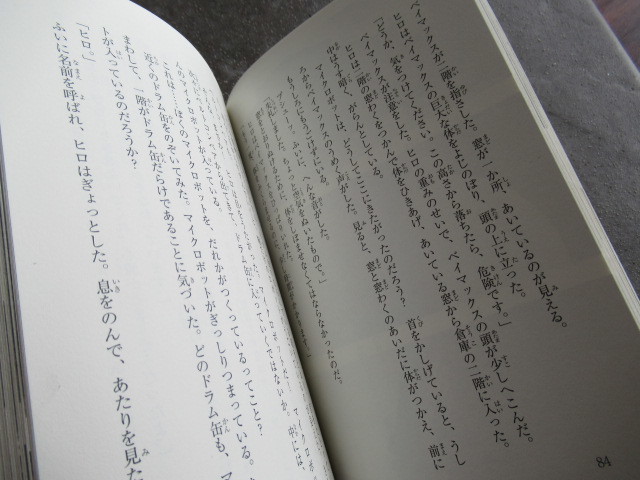 ベイマックスが二階を指さした。窓が一か所、あいているのが見える。
ヒロはベイマックスの巨大な体をよじのぼり、頭の上に立った。
「どうか、気をつけてください。この高さから落ちたら、危険です。」
ベイマックスが注意をした。ヒロの重みのせいで、ベイマックスの頭が少しへこんだ。
ヒロは二階の窓わくをつかんで体をひきあげ、あいている窓から倉庫の二階に入った。
中は暗く、がらんとしている。
マイクロボットは、どうしてここにきたがったのだろう? 首をかしげていると、うし
ろからベイマックスのうめき声がした。見ると、窓と窓わくのあいだに体がつかえ、前に
もうしろにもうごけずにいる。
プシューッ、と、へんな音がした。
「失礼しました。ちょっと空気をぬいたもので。」
しぼませなくてはならなかったのだ。
マイクロボット
に入っていくではないか。中には、
が入っている。
んのマイクロボットを、だれかがつくっているってこと?
これは……ぼくのマイクロボットがぎっしりつまっている。
近くのドラム缶をのぞいてみた。マイクロボットがぎっしりつまっている。
まわして、一階がドラム缶だらけであることに気づいた。どのドラム缶も、マイ
トが入っているのだろうか?
「ヒロ。」
ふいに名前を呼ばれ、ヒロはぎょっとした。息をのんで、あたりを見た
84